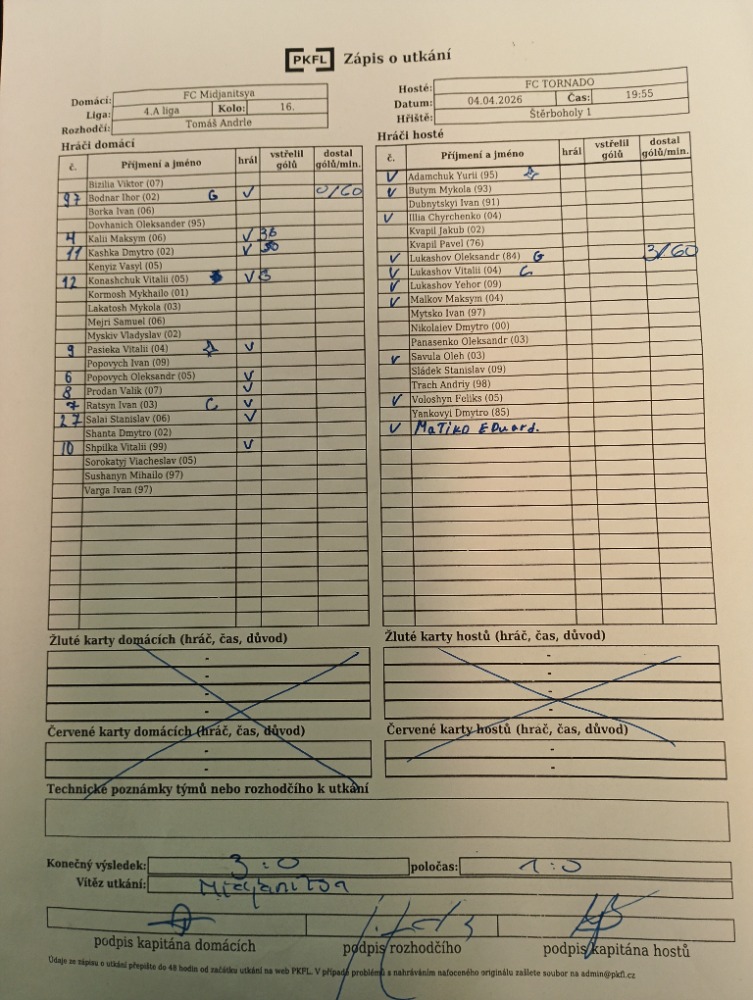 PKFL Zápis o utkání
Domácí: FC Midjanitsya
Liga: 4.A liga Kolo: 16.
Rozhodčí: Tomáš Andrle
Hosté: FC TORNADO
Datum: 04.04.2026 Čas: 19:55
Hřiště: Štěrboholy 1
Hráči domácí
č. Příjmení a jméno hrál vstřelil gólů dostal gólů/min.
Bizilia Viktor (07)
97 Bodnar Ihor (02) G ✓ 0/60
Borka Ivan (06)
Dovhanich Oleksander (95)
4 Kalii Maksym (06) ✓
11 Kashka Dmytro (02) ✓
Kenyiz Vasyl (05)
12 Konashchuk Vitalii (05) ✓
Kormosh Mykhailo (01)
Lakatosh Mykola (03)
Mejri Samuel (06)
Myskiv Vladyslav (02)
9 Pasieka Vitalii (04) ✓
Popovych Ivan (09)
6 Popovych Oleksandr (05) ✓
8 Prodan Valik (07) ✓
7 Ratsyn Ivan (03) C ✓
27 Salai Stanislav (06) ✓
Shanta Dmytro (02)
10 Shpilka Vitalii (99) ✓
Sorokatyj Viacheslav (05)
Sushanyn Mihailo (97)
Varga Ivan (97)
Hráči hosté
č. Příjmení a jméno hrál vstřelil gólů dostal gólů/min.
✓ Adamchuk Yurii (95)
✓ Butym Mykola (93)
Dubnytskyi Ivan (91)
✓ Illia Chyrchenko (04)
Kvapil Jakub (02)
Kvapil Pavel (76)
✓ Lukashov Oleksandr (84) G 3/60
✓ Lukashov Vitalii (04) C
✓ Lukashov Yehor (09)
✓ Malkov Maksym (04)
Mytsko Ivan (97)
Nikolaiev Dmytro (00)
Panasenko Oleksandr (03)
✓ Savula Oleh (03)
Sládek Stanislav (09)
Trach Andriy (98)
✓ Voloshyn Feliks (05)
Yankovyi Dmytro (85)
✓ MaTiko EDuard.
Žluté karty domácích (hráč, čas, důvod)
-
-
-
-
-
Žluté karty hostů (hráč, čas, důvod)
-
-
-
-
-
Červené karty domácích (hráč, čas, důvod)
-
-
Červené karty hostů (hráč, čas, důvod)
-
-
Technické poznámky týmů nebo rozhodčího k utkání
Konečný výsledek: 3:0 poločas: 1:0
Vítěz utkání:
podpis kapitána domácích podpis rozhodčího podpis kapitána hostů
Údaje ze zápisu o utkání přepište do 48 hodin od začátku utkání na web PKFL. V případě problémů s nahráváním nafoceného originálu zašlete soubor na admin@pkfl.cz